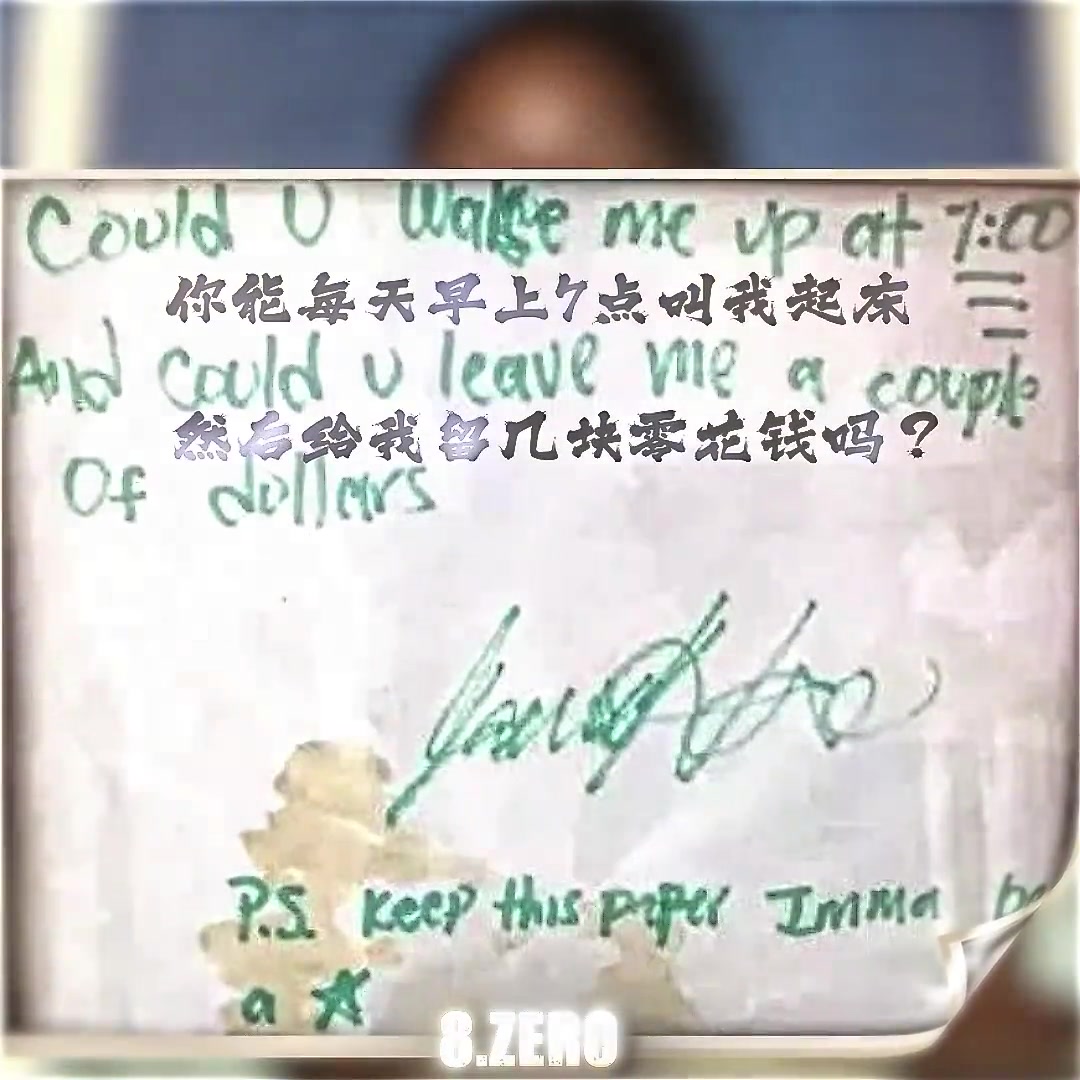 Could U Wake me up at 7:00
你能每天早上7点叫我起床
And could u leave me a couple
然后给我留几块零花钱吗？
Of dollars
P.S. Keep this paper Imma
a ☆
8.ZERO